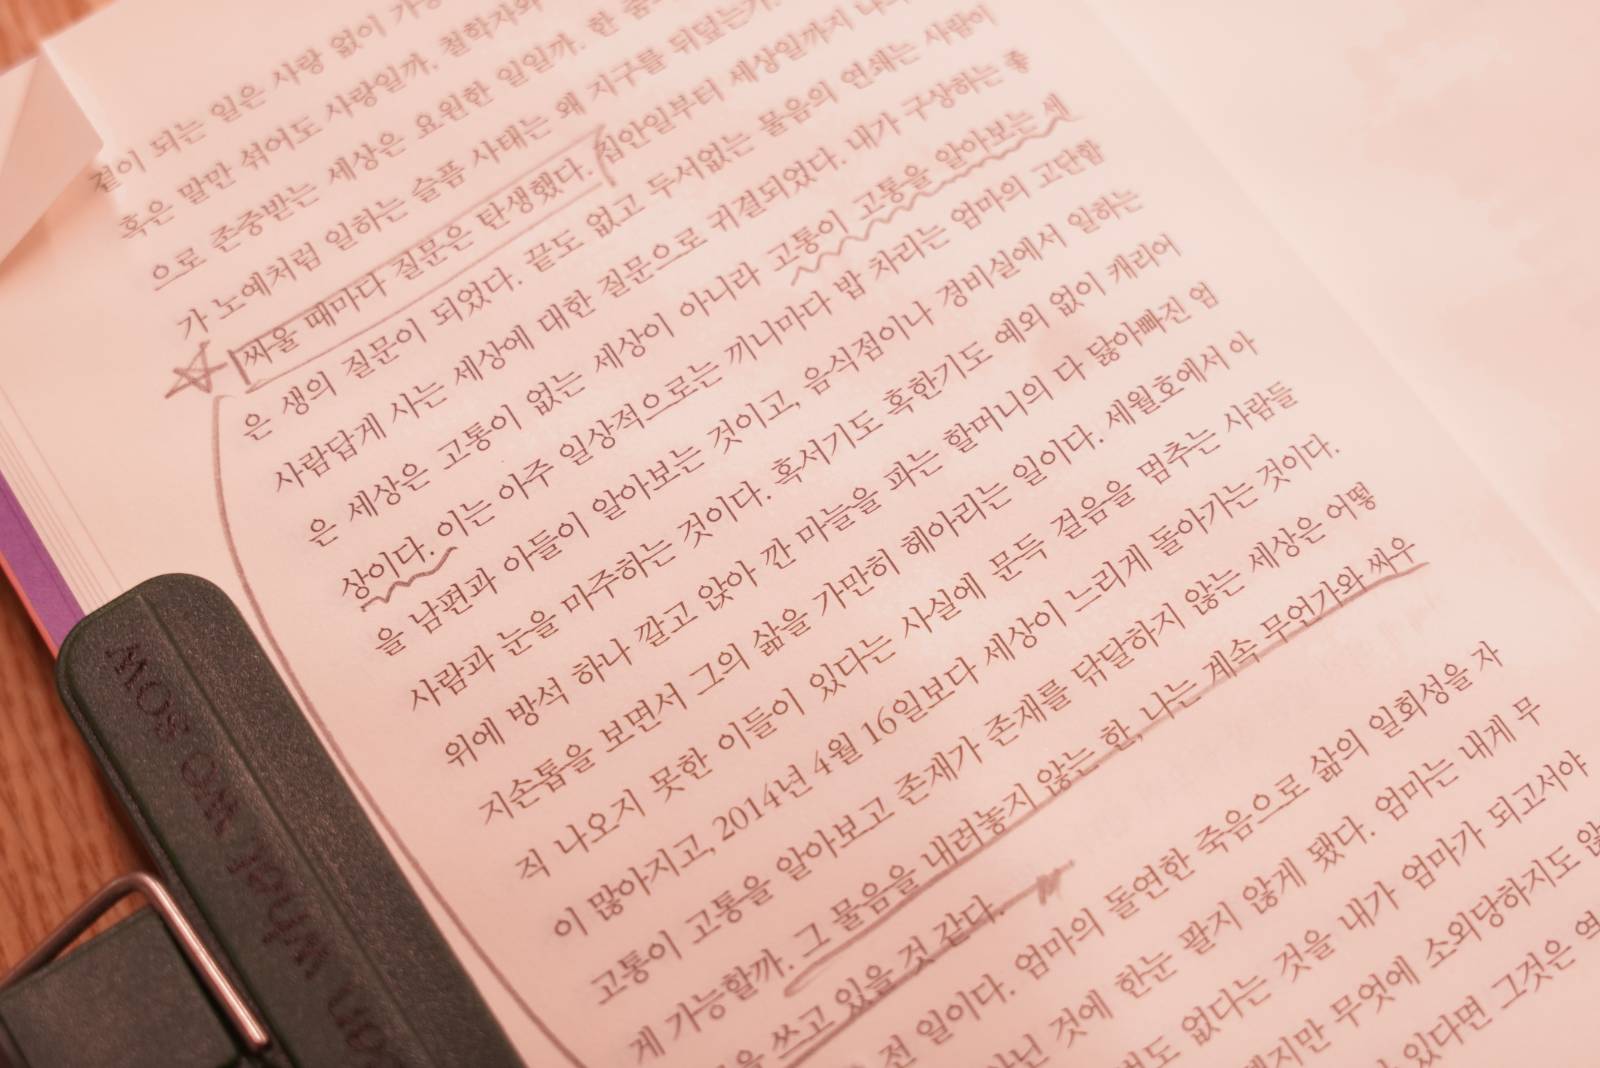 결이 되는 일은 사랑 없이 가능
혹은 말만 섞어도 사랑일까. 철학자와
으로 존중받는 세상은 요원한 일일까. 한
가 노예처럼 일하는 슬픔 사태는 왜 지구를 뒤덮는가.
싸울 때마다 질문은 탄생했다. 집안일부터 세상일까지
은 생의 질문이 되었다. 끝도 없고 두서없는 물음의 연쇄는 사람이
사람답게 사는 세상에 대한 질문으로 귀결되었다. 내가 구상하는 좋
은 세상은 고통이 없는 세상이 아니라 고통이 고통을 알아보는 세
상이다. 이는 아주 일상적으로는 끼니마다 밥 차리는 엄마의 고단함
을 남편과 아들이 알아보는 것이고, 음식점이나 경비실에서 일하는
사람과 눈을 마주하는 것이다. 혹서기도 혹한기도 예외 없이 캐리어
위에 방석 하나 깔고 앉아 깐 마늘을 파는 할머니의 다 닳아빠진 엄
지손톱을 보면서 그의 삶을 가만히 헤아리는 일이다. 세월호에서 아
직 나오지 못한 이들이 있다는 사실에 문득 걸음을 멈추는 사람들
이 많아지고, 2014년 4월 16일보다 세상이 느리게 돌아가는 것이다.
고통이 고통을 알아보고 존재가 존재를 닦달하지 않는 세상은 어떻
게 가능할까. 그 물음을 내려놓지 않는 한, 나는 계속 무언가와 싸우
을 쓰고 있을 것 같다.
전 일이다. 엄마의 돌연한 죽음으로 삶의 일회성을 자
아닌 것에 한눈 팔지 않게 됐다. 엄마는 내게 무
없다는 것을 내가 엄마가 되고서야
무엇에 소외당하지도
있다면 그것은
what we sow